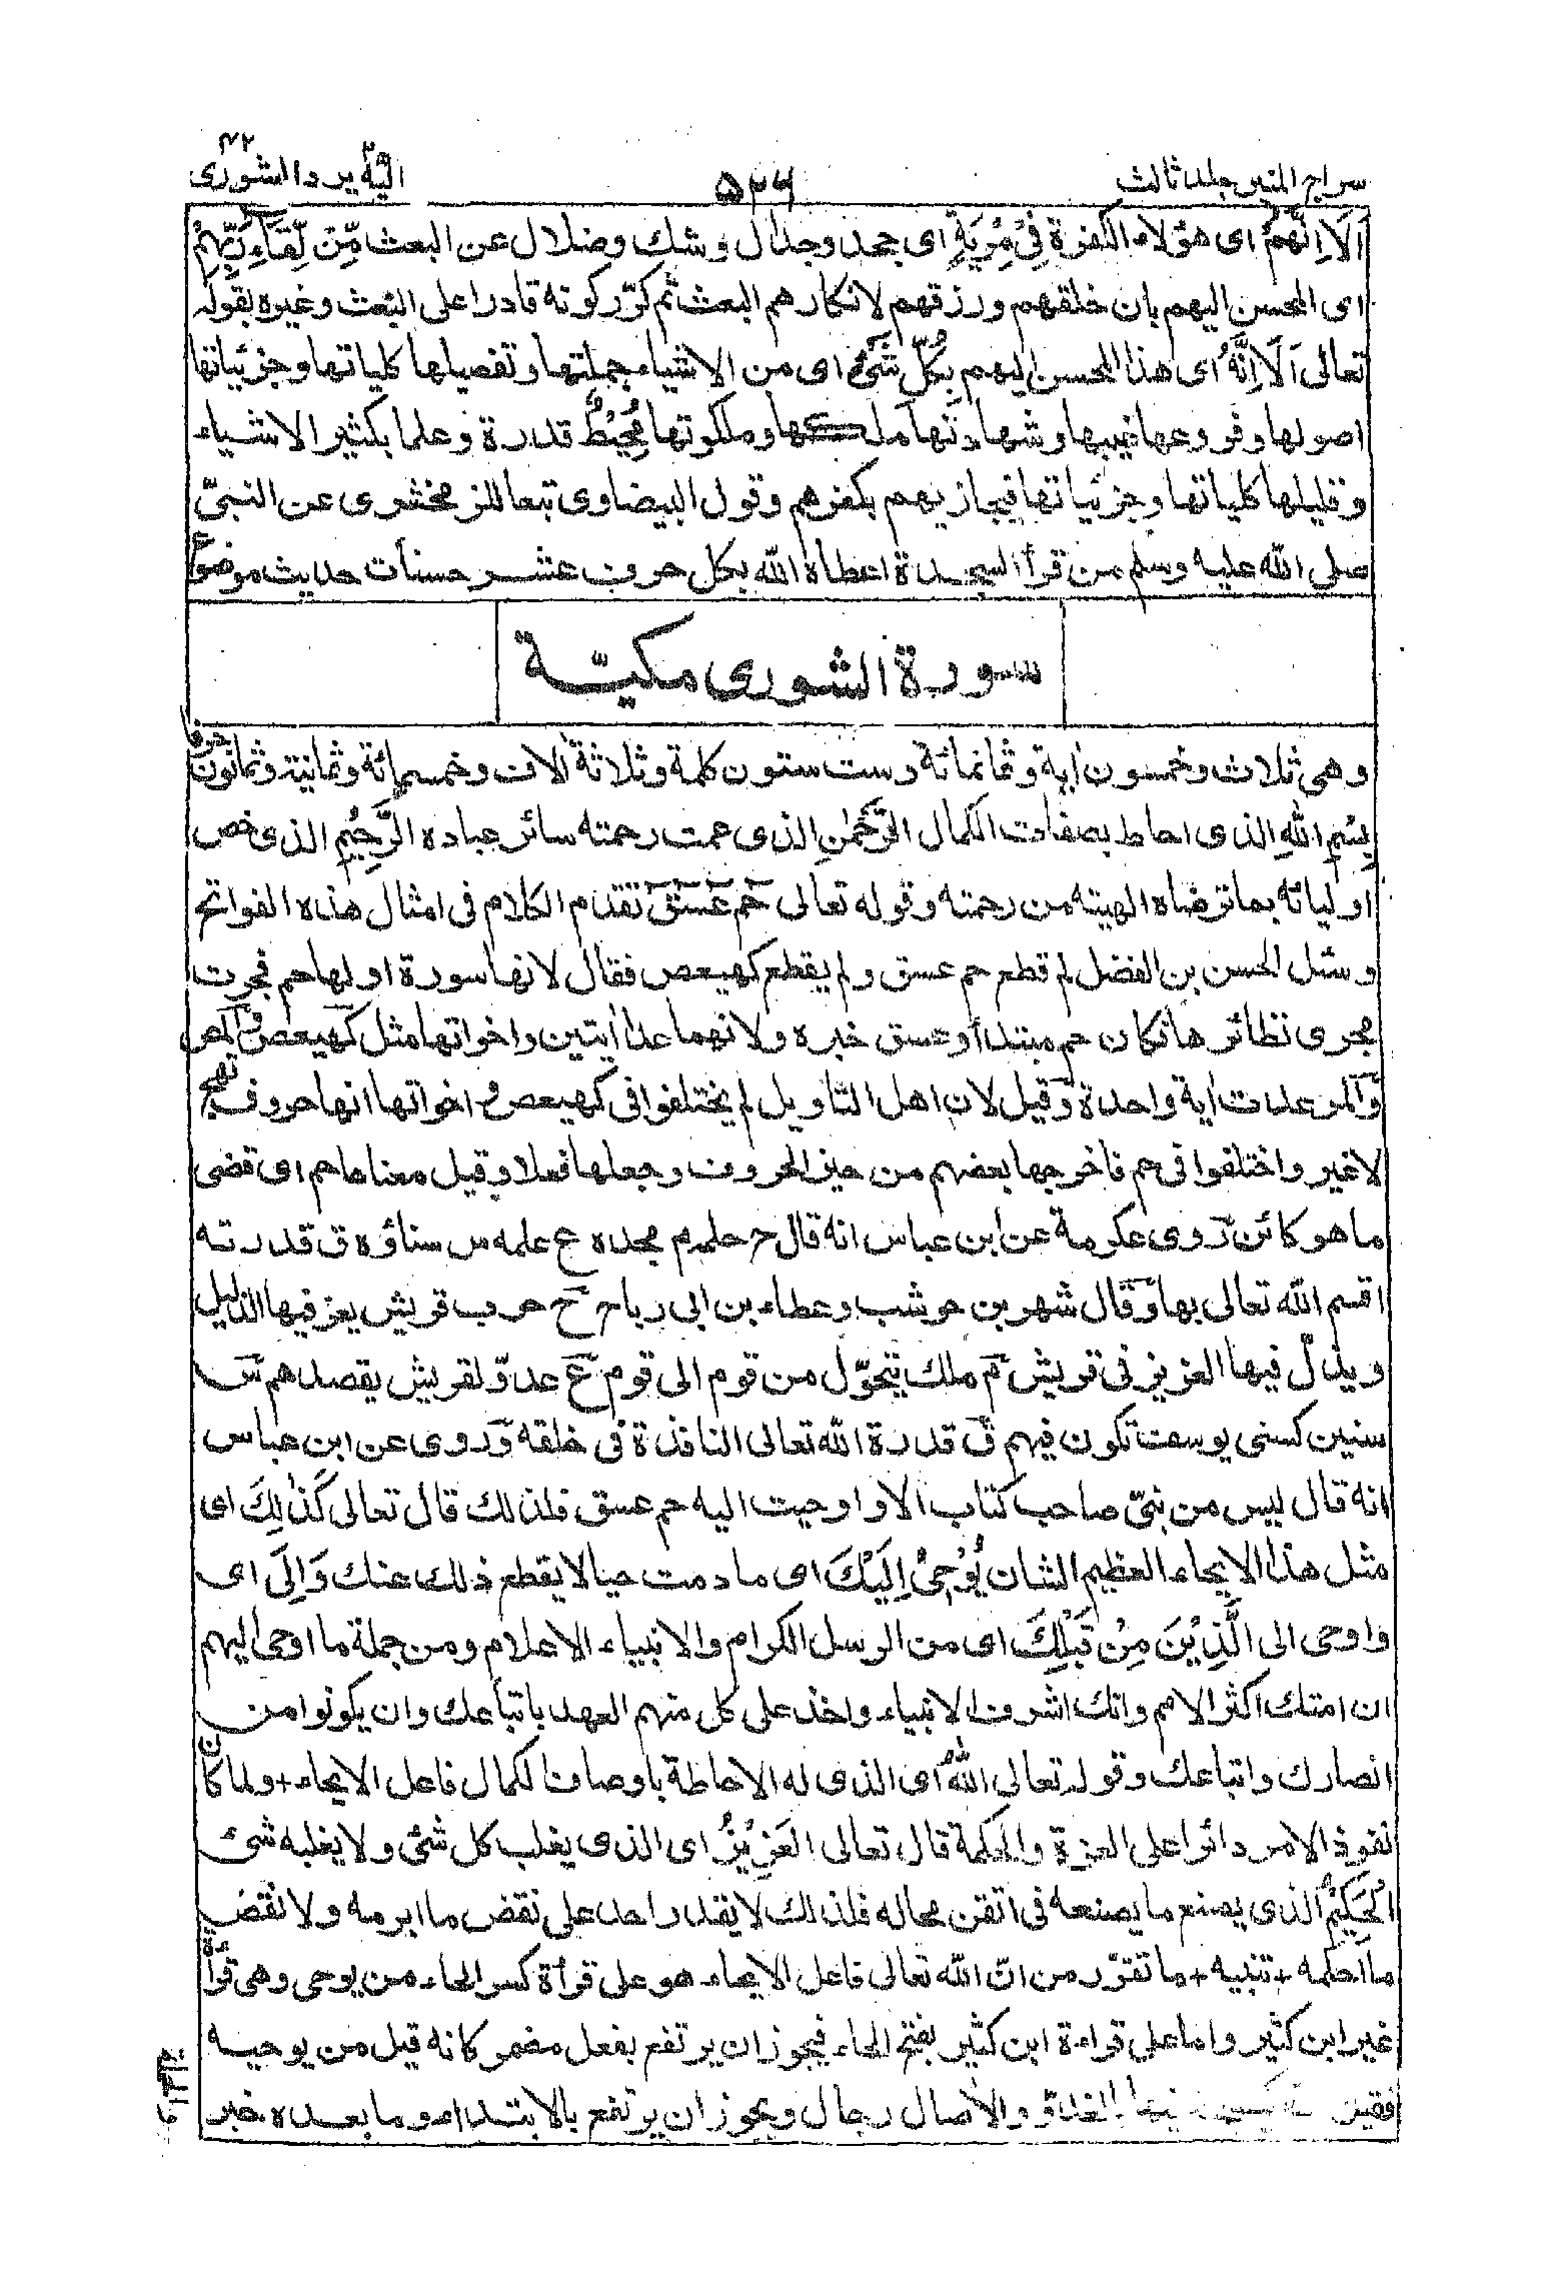 سراج المنير جلد ثالث
٥٢٦
اليه يرد ٢٥ الشورى ٤٢
اَلَا اِنَّهُمْ اى هؤلاء الكفرة فِيْ مِرْيَةٍ اى جحد وجدال وشك وضلال عن البعث مِّنْ لِّقَآءِ رَبِّهِمْ
اى المحسن اليهم بان خلقهم ورزقهم لانكارهم البعث ثم كرّر كونه قادرا على البعث وغيره بقوله
تعالى اَلَا اِنَّهٗ اى هذا المحسن اليهم بِكُلِّ شَيْءٍ اى من الاشياء جملتها وتفصيلها كلياتها وجزئياتها
اصولها وفروعها غيبها وشهادتها ملكها وملكوتها مُّحِيْطٌ قدرة وعلما بكثير الاشياء
وقليلها كلياتها وجزئياتها فيجازيهم بكفرهم وقول البيضاوى تبعا للزمخشرى عن النبىّ
صلى الله عليه وسلم من قرأ السجدة اعطاه الله بكل حرف عشر حسنات حديث موضوع
سورة الشورى مكيّة
وهى ثلاث وخمسون أية وثمانمائة وست ستون كلمة وثلاثة ألاف وخمسمائة وثمانية وثمانون حرفا
بِسْمِ اللهِ الذى احاط بصفات الكمال الرَّحْمٰنِ الذى عمت رحمته سائر عباده الرَّحِيْمِ الذى خص
اوليائه بما ترضاه الهيته من رحمته وقوله تعالى حٰمٓ عٓسٓقٓ تقدم الكلام فى امثال هذه الفواتح
وسئل الحسن بن الفضل لم قطع حم عسق ولم يقطع كهيعص فقال لانها سورة اولها حم فجرت
مجرى نظائرها فكان حم مبتدأ وعسق خبره ولانهما عدا أيتين واخواتها مثل كهيعص والمص
والمر عدت أية واحدة وقيل لان اهل التأويل لم يختلفوا فى كهيعص واخواتها انها حروف تهج
لاغير واختلفوا فى حم فاخرجها بعضهم من حيز الحروف وجعلها فعلا وقيل معناها حم اى قضى
ما هو كائن روى عكرمة عن ابن عباس انه قال ح حلمه م مجده ع علمه س سناؤه ق قدرته
اقسم الله تعالى بها وقال شهر بن حوشب وعطاء بن ابى رباح ح حرب قريش يعز فيها الذليل
ويذلّ فيها العزيز فى قريش م ملك يتحوّل من قوم الى قوم ع عدوّ لقريش يقصدهم س
سنين كسنى يوسف تكون فيهم ق قدرة الله تعالى النافذة فى خلقه وروى عن ابن عباس
انه قال ليس من نبىّ صاحب كتاب الا واوحيت اليه حم عسق فلذلك قال تعالى كَذٰلِكَ اى
مثل هذا الايحاء العظيم الشان يُوْحِيْ اِلَيْكَ اى ما دمت حيا لا يقطع ذلك عنك وَاِلَى اى
واوحى الى الَّذِيْنَ مِنْ قَبْلِكَ اى من الرسل الكرام والانبياء الاعلام ومن جملة ما اوحى اليهم
ان امتك اكثر الامم وانك اشرف الانبياء واخذ على كل منهم العهد باتباعك وان يكونوا من
انصارك واتباعك وقوله تعالى اللهُ اى الذى له الاحاطة باوصاف الكمال فاعل الايحاء + ولما كان
نفوذ الامر دائرا على العزة والحكمة قال تعالى الْعَزِيْزُ اى الذى يغلب كل شئ ولا يغلبه شئ
الْحَكِيْمُ الذى يصنع ما يصنعه فى اتقن محاله فلذلك لا يقدر احد على نقض ما ابرمه ولا نقض
ما احكمه + تنبيه + ما تقرّر من انّ الله تعالى فاعل الايحاء هو على قرأة كسر الحاء من يوحى وهى قرأة
غير ابن كثير واما على قراءة ابن كثير بفتح الحاء فيجوز ان يرتفع بفعل مضمر كانه قيل من يوحيه
فقيل الله كيسبح له فيها بالغدوّ والأصال رجال ويجوز ان يرتفع بالابتداء وما بعده خبر